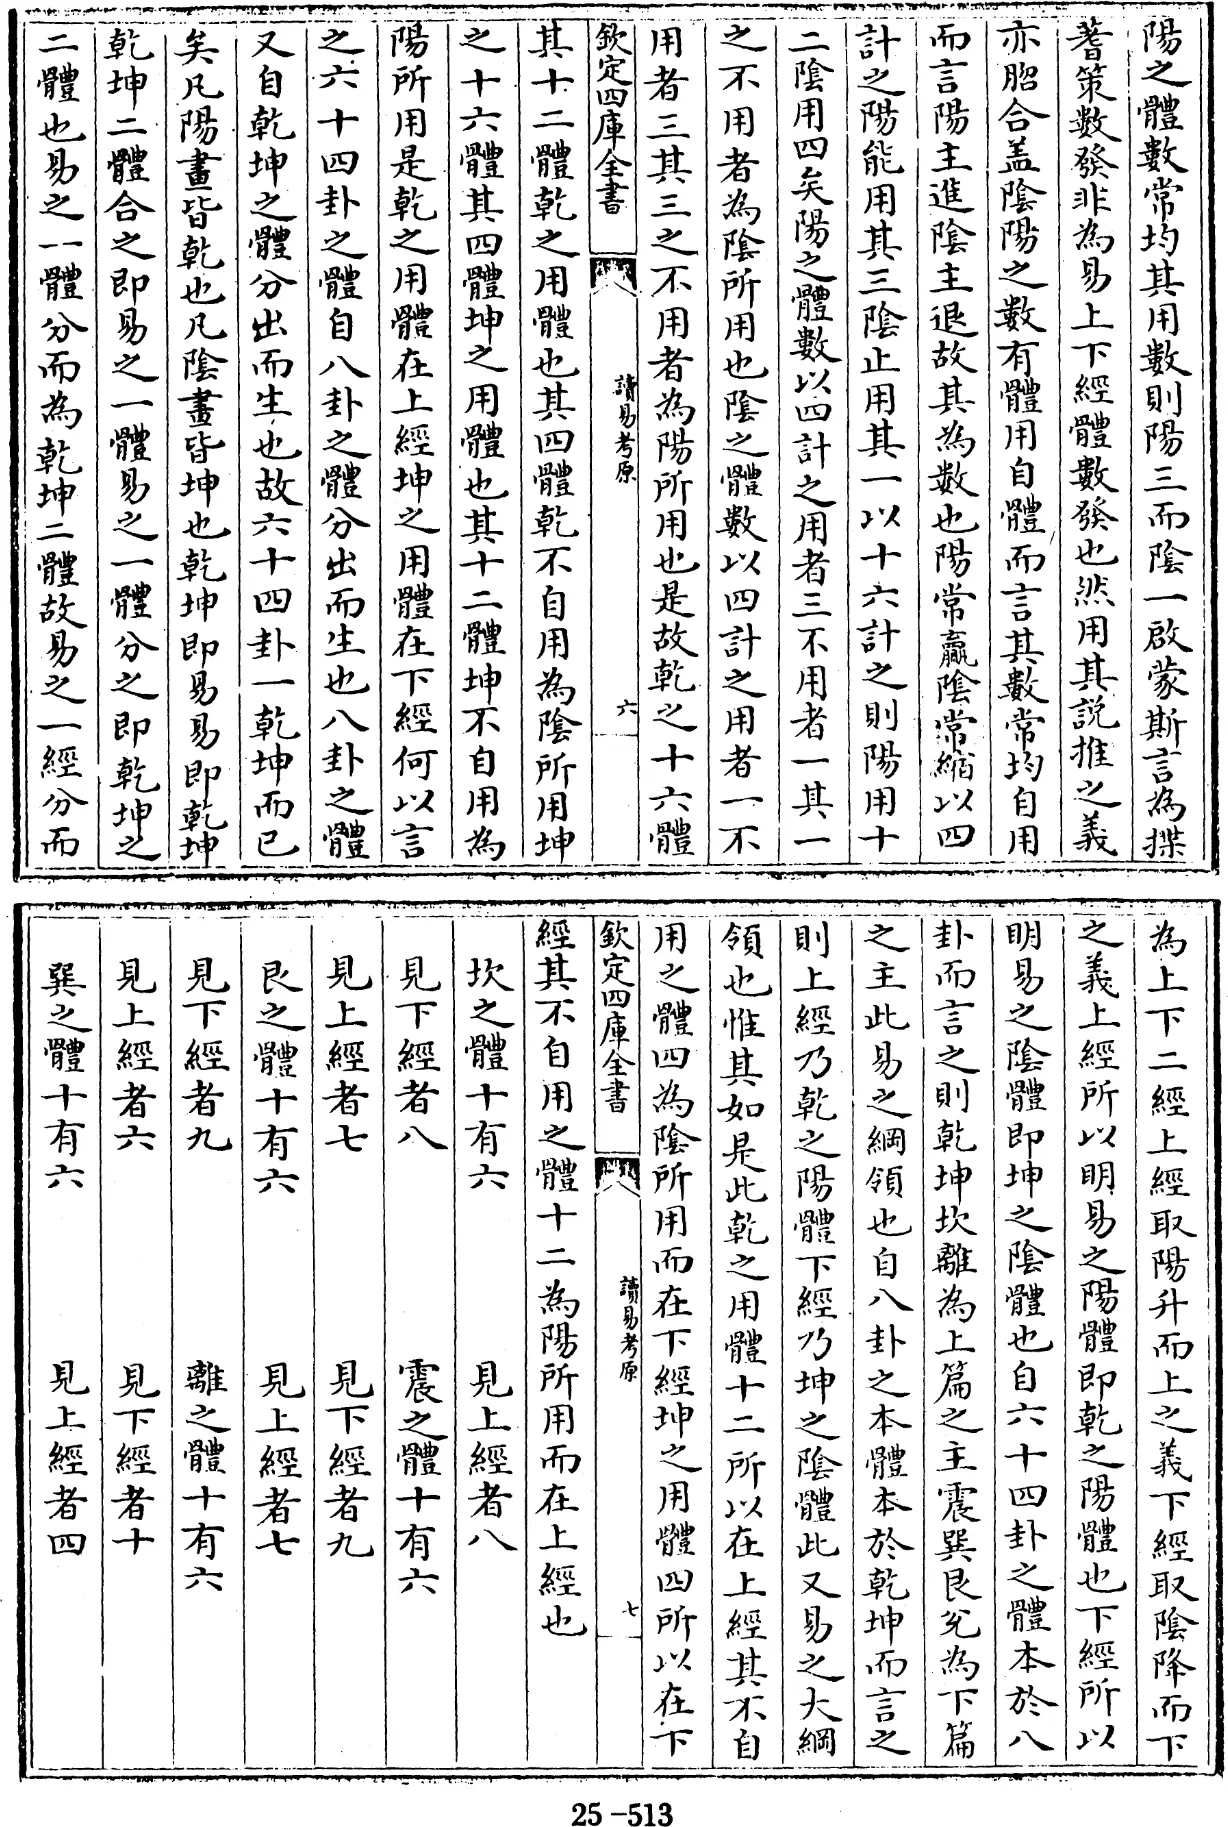 陽之體數常均其用數則陽三而陰一啟蒙斯言為揲
蓍策數發非為易上下經體數發也然用其説推之義
亦脗合盖陰陽之數有體用自體而言其數常均自用
而言陽主進陰主退故其為數也陽常贏陰常縮以四
計之陽能用其三陰止用其一以十六計之則陽用十
二陰用四矣陽之體數以四計之用者三不用者一其一
之不用者為陰所用也陰之體數以四計之用者一不
用者三其三之不用者為陽所用也是故乾之十六體
欽定四庫全書
讀易考原
六
其十二體乾之用體也其四體乾不自用為陰所用坤
之十六體其四體坤之用體也其十二體坤不自用為
陽所用是乾之用體在上經坤之用體在下經何以言
之六十四卦之體自八卦之體分出而生也八卦之體
又自乾坤之體分出而生也故六十四卦一乾坤而已
矣凡陽畫皆乾也凡陰畫皆坤也乾坤即易易即乾坤
乾坤二體合之即易之一體易之一體分之即乾坤之
二體也易之一體分而為乾坤二體故易之一經分而
為上下二經上經取陽升而上之義下經取陰降而下
之義上經所以明易之陽體即乾之陽體也下經所以
明易之陰體即坤之陰體也自六十四卦之體本於八
卦而言之則乾坤坎離為上篇之主震巽艮兌為下篇
之主此易之綱領也自八卦之本體本於乾坤而言之
則上經乃乾之陽體下經乃坤之陰體此又易之大綱
領也惟其如是此乾之用體十二所以在上經其不自
用之體四為陰所用而在下經坤之用體四所以在下
欽定四庫全書
讀易考原
七
經其不自用之體十二為陽所用而在上經也
坎之體十有六 見上經者八
見下經者八 震之體十有六
見上經者七 見下經者九
艮之體十有六 見上經者七
見下經者九 離之體十有六
見上經者六 見下經者十
巽之體十有六 見上經者四
25-513